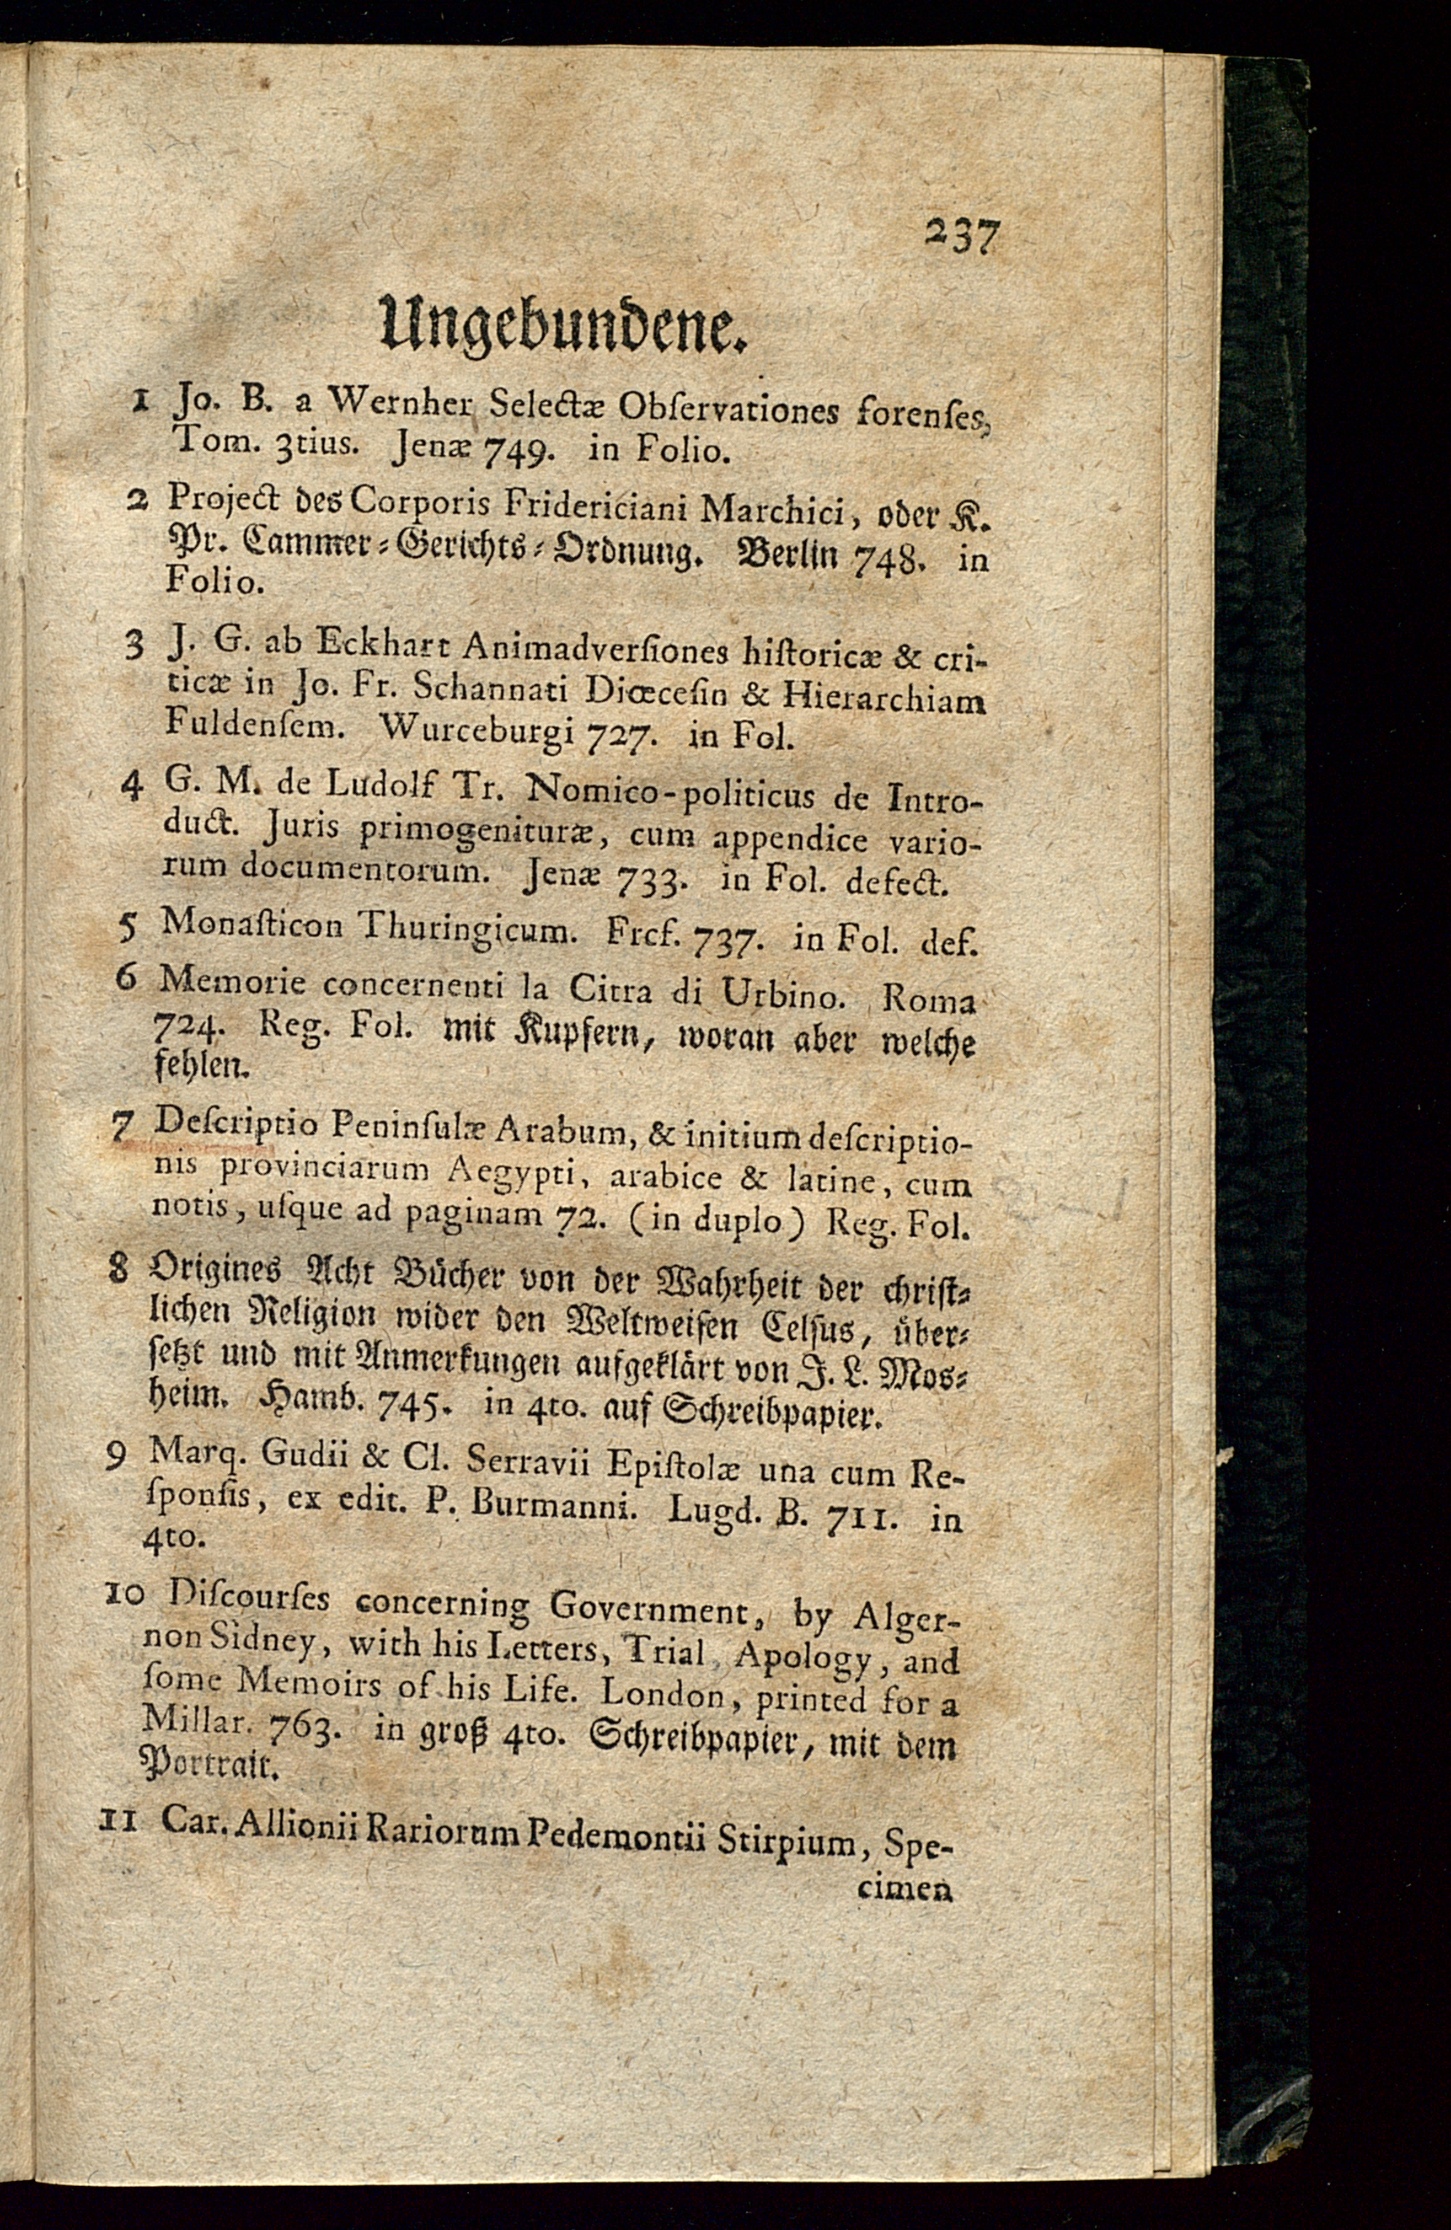 237
Ungebundene.
1 Jo. B. a Wernher Selectæ Obſervationes forenſes,
Tom. 3tius. Jenæ 749. in Folio.
2 Project des Corporis Fridericiani Marchici, oder K.
Pr. Cammer⸗Gerichts⸗Ordnung. Berlin 748. in
Folio.
3 J. G. ab Eckhart Animadverſiones hiſtoricæ & cri-
ticæ in Jo. Fr. Schannati Diœceſin & Hierarchiam
Fuldenſem. Wurceburgi 727. in Fol.
4 G. M. de Ludolf Tr. Nomico-politicus de Intro-
duct. Juris primogenituræ, cum appendice vario-
rum documentorum. Jenæ 733. in Fol. defect.
5 Monaſticon Thuringicum. Frcf. 737. in Fol. def.
6 Memorie concernenti la Citra di Urbino. Roma
724. Reg. Fol. mit Kupfern, woran aber welche
fehlen.
7 Deſcriptio Peninſulæ Arabum, & initium deſcriptio-
nis provinciarum Aegypti, arabice & latine, cum
notis, uſque ad paginam 72. (in duplo) Reg. Fol.
8 Origines Acht Bücher von der Wahrheit der chriſt⸗
lichen Religion wider den Weltweiſen Celſus, über⸗
ſetzt und mit Anmerkungen aufgeklärt von J. L. Mos⸗
heim. Hamb. 745. in 4to. auf Schreibpapier.
9 Marq. Gudii & Cl. Serravii Epiſtolæ una cum Re-
ſponſis, ex edit. P. Burmanni. Lugd. B. 711. in
4to.
10 Diſcourſes concerning Government, by Alger-
non Sidney, with his Letters, Trial, Apology, and
ſome Memoirs of his Life. London, printed for a
Millar. 763. in groß 4to. Schreibpapier, mit dem
Portrait.
11 Car. Allionii Rariorum Pedemontii Stirpium, Spe-
cimen